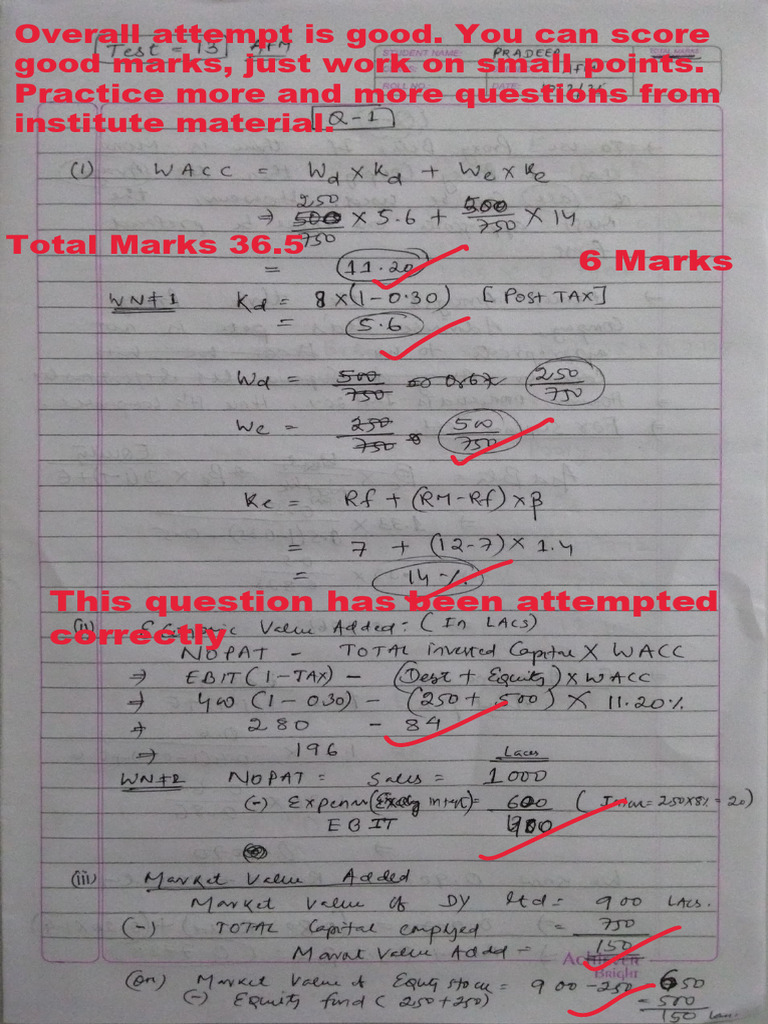 Overall attempt is good. You can score
good marks, just work on small points.
Practice more and more questions from
institute material.
Test = 13 AFM
STUDENT NAME: PRADEEP
TOTAL MARKS
ROLL NO. DATE
Q-1
(1) WACC = Wd x Kd + We x Ke
250
⇒ 500/750 x 5.6 + 500/750 x 14
Total Marks 36.5
= 11.20
6 Marks
WN#1 Kd = 8 x (1-0.30) [POST TAX]
= 5.6
Wd = 500/750 250/750
We = 250/750 500/750
Ke = Rf + (RM-Rf) x β
= 7 + (12-7) x 1.4
= 14%
This question has been attempted
correctly
(ii) Economic Value Added: (In LACS)
NOPAT - TOTAL invested Capital X WACC
⇒ EBIT (1-TAX) - (Debt + Equity) x WACC
⇒ 400 (1-0.30) - (250 + 500) X 11.20%
⇒ 280 - 84
⇒ 196
Laces
WN#2 NOPAT = Sales = 1000
(-) Expenses = 600 ( = 250x8% = 20)
EBIT 400
(iii) Market Value Added
Market Value of DY Ltd = 900 LACS.
(-) TOTAL Capital employed = 750
Market Value Added = 150
Achiever
Bright
(OR) Market Value of Equity stock = 900 - 250 650
(-) Equity fund (250+250) = 500
150 Lacs